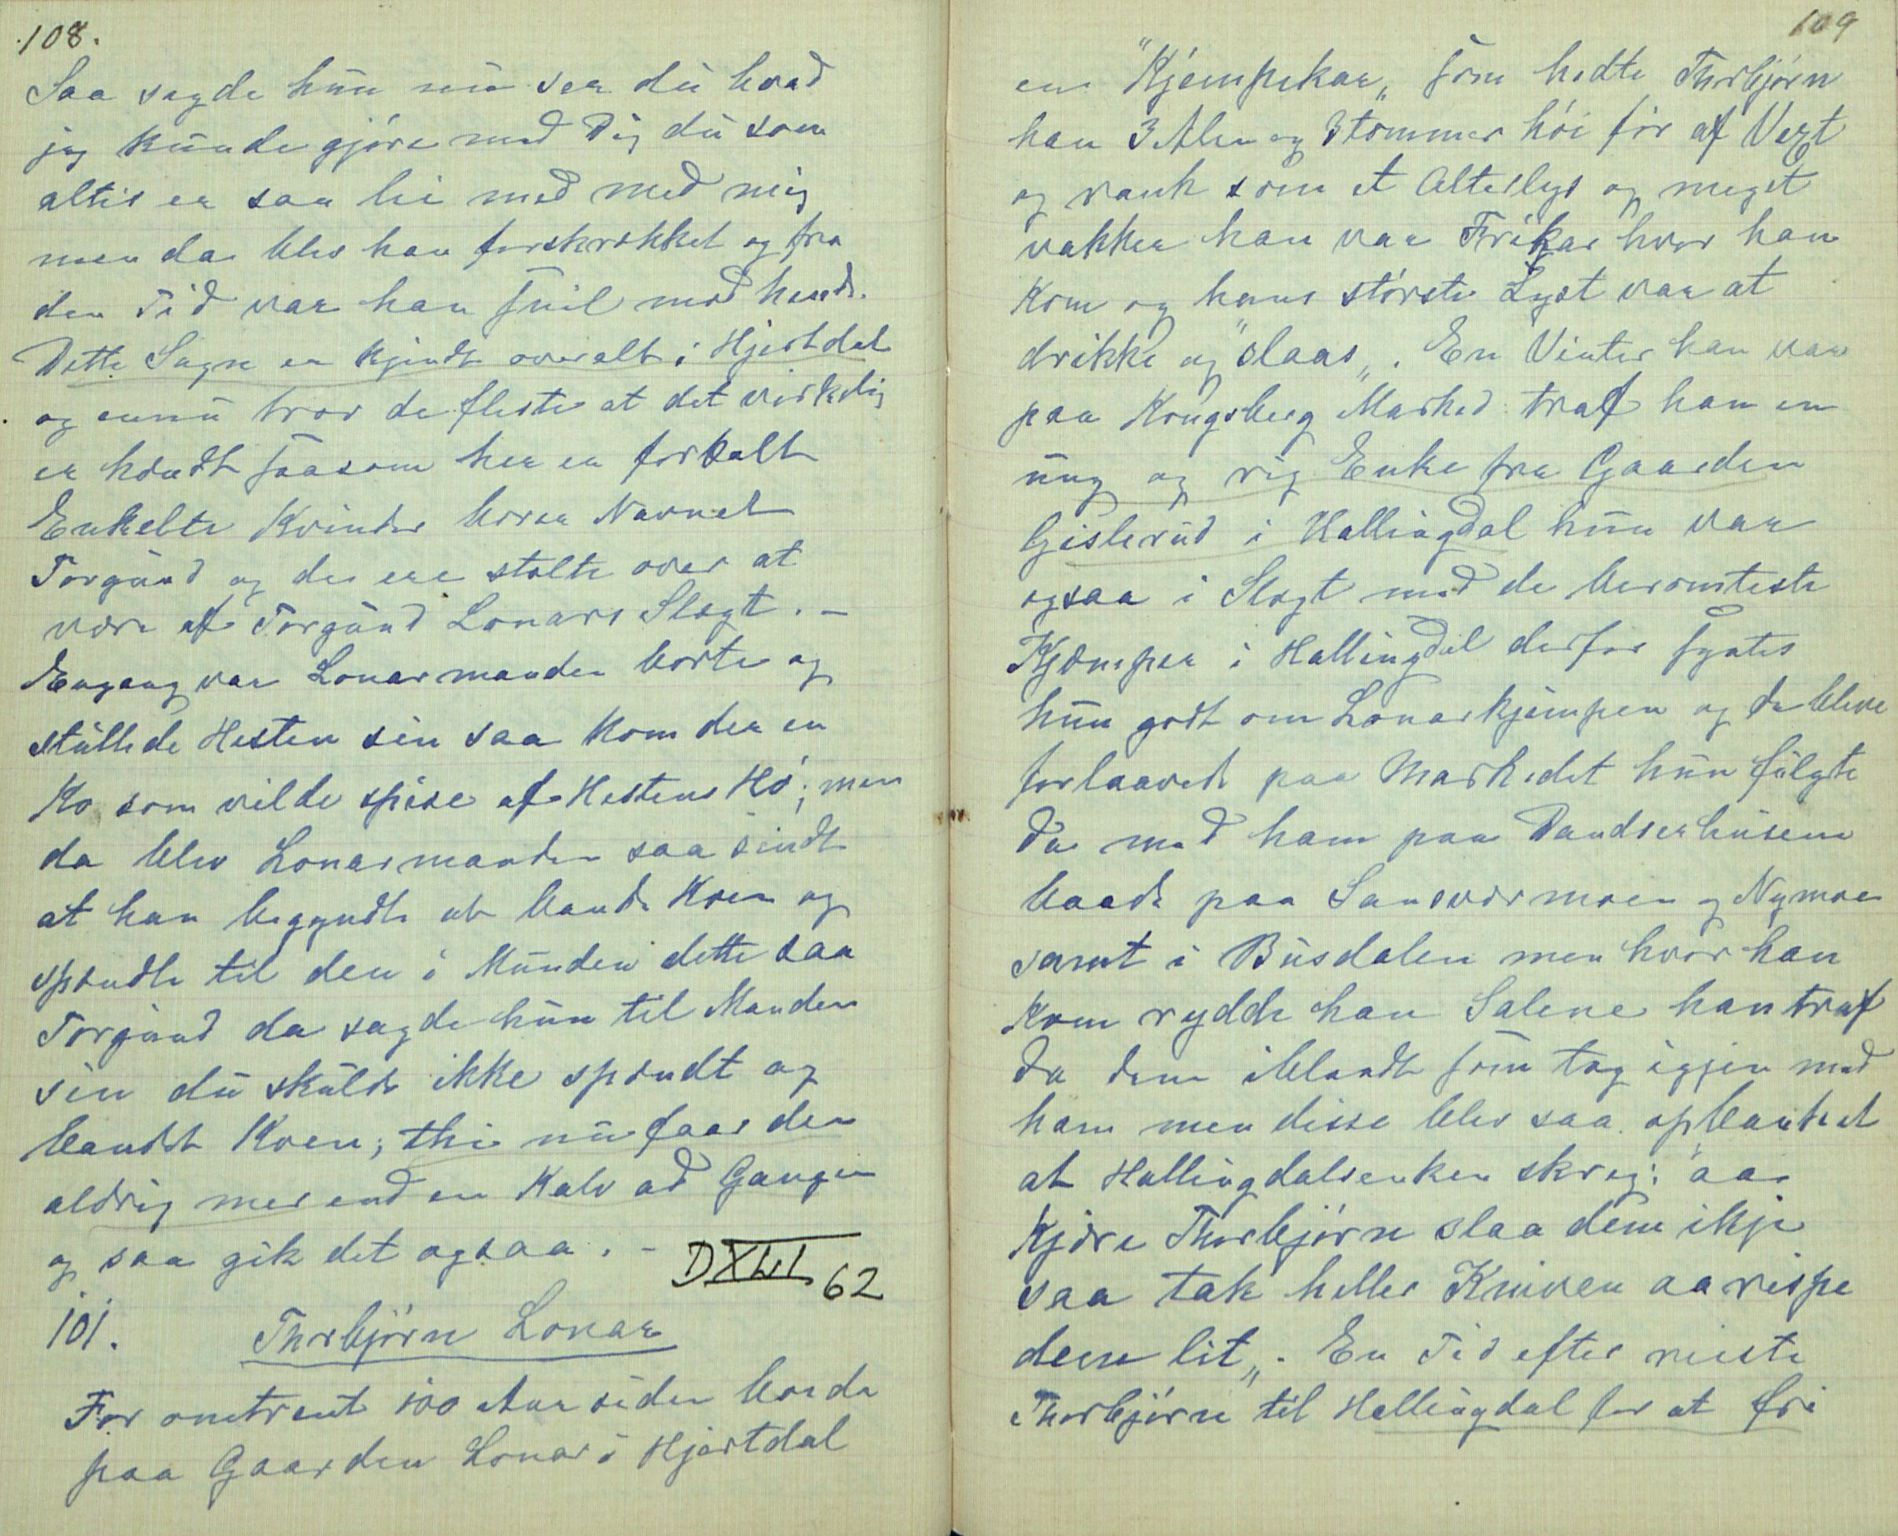 108.
Saa sagde hun nu ser du hvad
jeg kunde gjöre med Dig du som
altid er saa lei med med mig
men da blev han forskrækket og fra
den Tid var han snil mod hende.
Dette Sagn er kjendt overalt i Hjertdal
og ennu tror de fleste at det virkelig
er hændt saasom her er fortalt
Enkelte Kvinder bærer Navnet
Torgund og de ere stolte over at
være af Torgund Lonars Slægt. –
Engang var Lonarmanden borte og
stullede Hesten sin saa kom der en
Ko som vilde spise af Hestens Hö; men
da blev Lonarmanden saa sindt
at han begyndte at bande Koen og
spændte til den i Munden dette saa
Torgund da sagde hun til Manden
sin du skulde ikke spændt og
bandet Koen, thi nu faar den
aldrig mer end en Kalv ad Gangen
og saa gik det ogsaa. –
DXLI 62
101. Thorbjörn Lonar
For omtrent 100 Aar siden boede
paa Gaarden Lonar i Hjertdal
109
en "Kjempekar„ som hedte Thorbjörn
han 3 Alen og 3 tommer höiför af Vext
og rank som et Alterlys og meget
vakker han var Frikar hvor han
kom og hans störste Lyst var at
drikke og "slaas„. En Vinter han var
paa Kongsberg Marked traf han en
ung og rig Enke fra Gaarden
Gislerud i Hallingdal hun var
ogsaa i Slægt med de beromteste
Kjæmper i Hallingdal derfor syntes
hun godt om Lonarkjempen og de bleve
forlovede paa Markedet hun fulgte
da med ham paa Dandserhusene
baade paa Sansværmoen og Nymoen
samt i Busdalen men hvor han
kom rydde han Salene han traf
da dem iblandt som tog igjen med
ham men disse blev saa opbanket
at Hallingdalsenken skreg: "aa
kjære Thorbjörn slaa dem ikje
saa tak heller Kniven aa rispe
dem lit„. En Tid efter reiste
Thorbjörn til Hallingdal for at fri